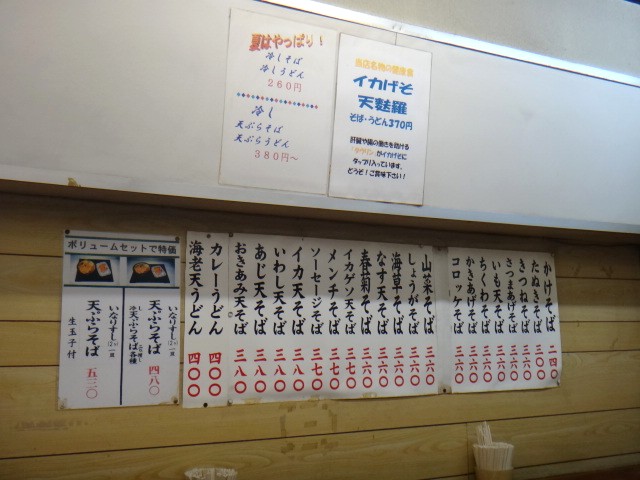 夏はやっぱり!
冷しそば
冷しうどん
260円
冷し
天ぷらそば
天ぷらうどん
380円〜
当店名物の健康食
イカげそ
天麩羅
そば・うどん370円
肝臓や腸の働きを助ける
「タウリン」がイカげそに
タップリ入っています。
どうぞ!ご賞味下さい!
かけそば 二四〇
たぬきそば 三〇〇
きつねそば 三六〇
さつまあげそば 三六〇
いも天そば 三六〇
ちくわそば 三六〇
かきあげそば 三六〇
コロッケそば 三六〇
山菜そば 三六〇
しょうがそば 三六〇
海草そば 三六〇
なす天そば 三六〇
春菊そば 三六〇
イカゲソ天そば 三七〇
メンチそば 三七〇
ソーセージそば 三七〇
イカ天そば 三八〇
いわし天そば 三八〇
あじ天そば 三八〇
おきあみ天そば 三八〇
カレーうどん 四〇〇
海老天うどん 四〇〇
ボリュームセットで特価
いなりずし
天ぷらそば 四八〇
いなりずし
冷天ぷらそば 五三〇
生玉子付